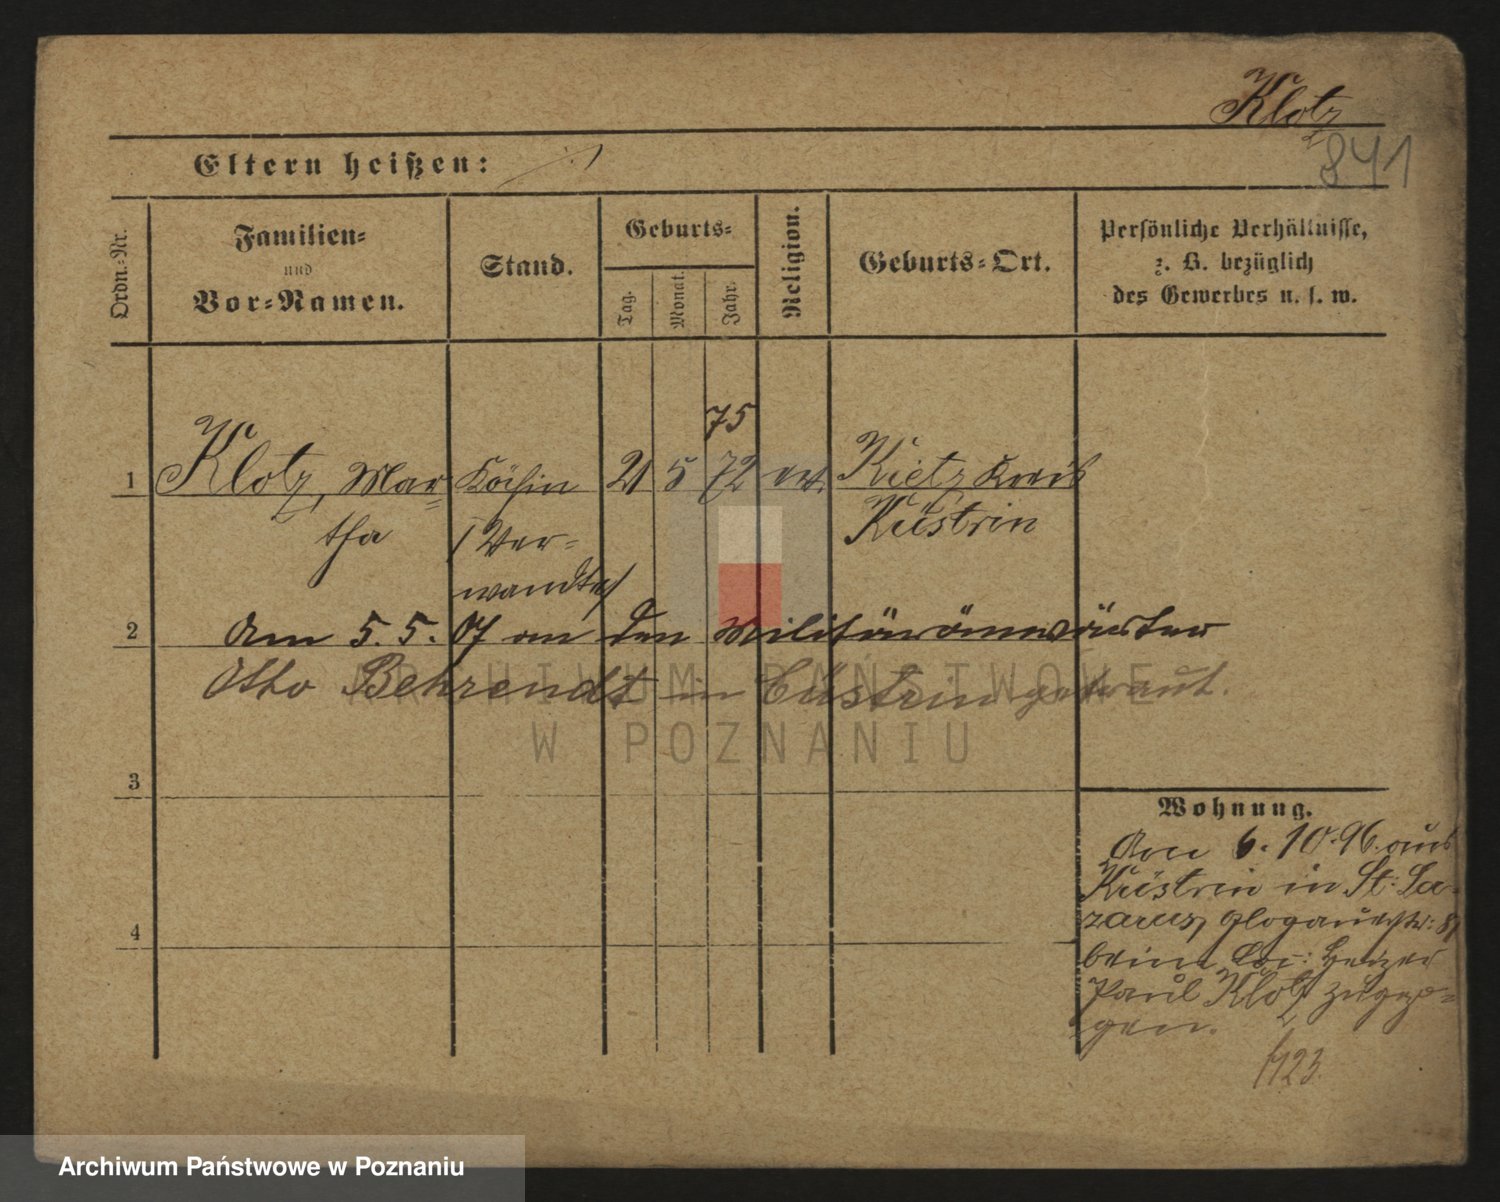 Klotz
841
Eltern heißen: ./.
Ordn.-Nr.
Familien-
und
Vor-Namen.
Stand.
Geburts-
Tag.
Monat.
Jahr.
Religion.
Geburts-Ort.
Persönliche Verhältnisse,
z. B. bezüglich
des Gewerbes u. s. w.
75
1 Klotz, Mar- Köchin 21 5 72 ev. Kietz Kreis
tha (Ver- Küstrin
wandte)
2 Am 5.5.07 an den Militäranwärter
Otto Behrendt in Cüstrin getraut.
ARCHIWUM PAŃSTWOWE
W POZNANIU
3
Wohnung.
Am 6.10.96 aus
Küstrin in St: La-
zarus, Glogauerstr:
4
beim Loc: Heizer
Paul Klotz zugezo-
gen.
1123.
Archiwum Państwowe w Poznaniu